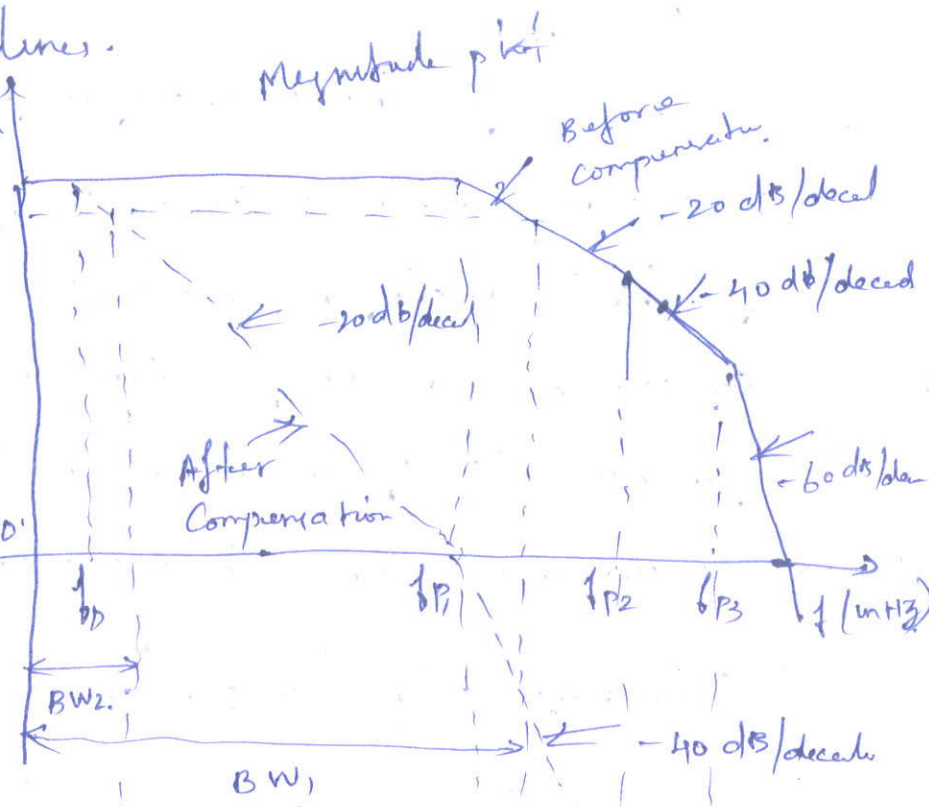 lines.
Magnitude plot
Before
compensatn.
-20 dB/decad
-40 dB/decad
-20 dB/decad
After
Compensation
-60 dB/dec
0
fD
fP1
fP2
fP3
f (in Hz)
BW2.
BW1
-40 dB/decade